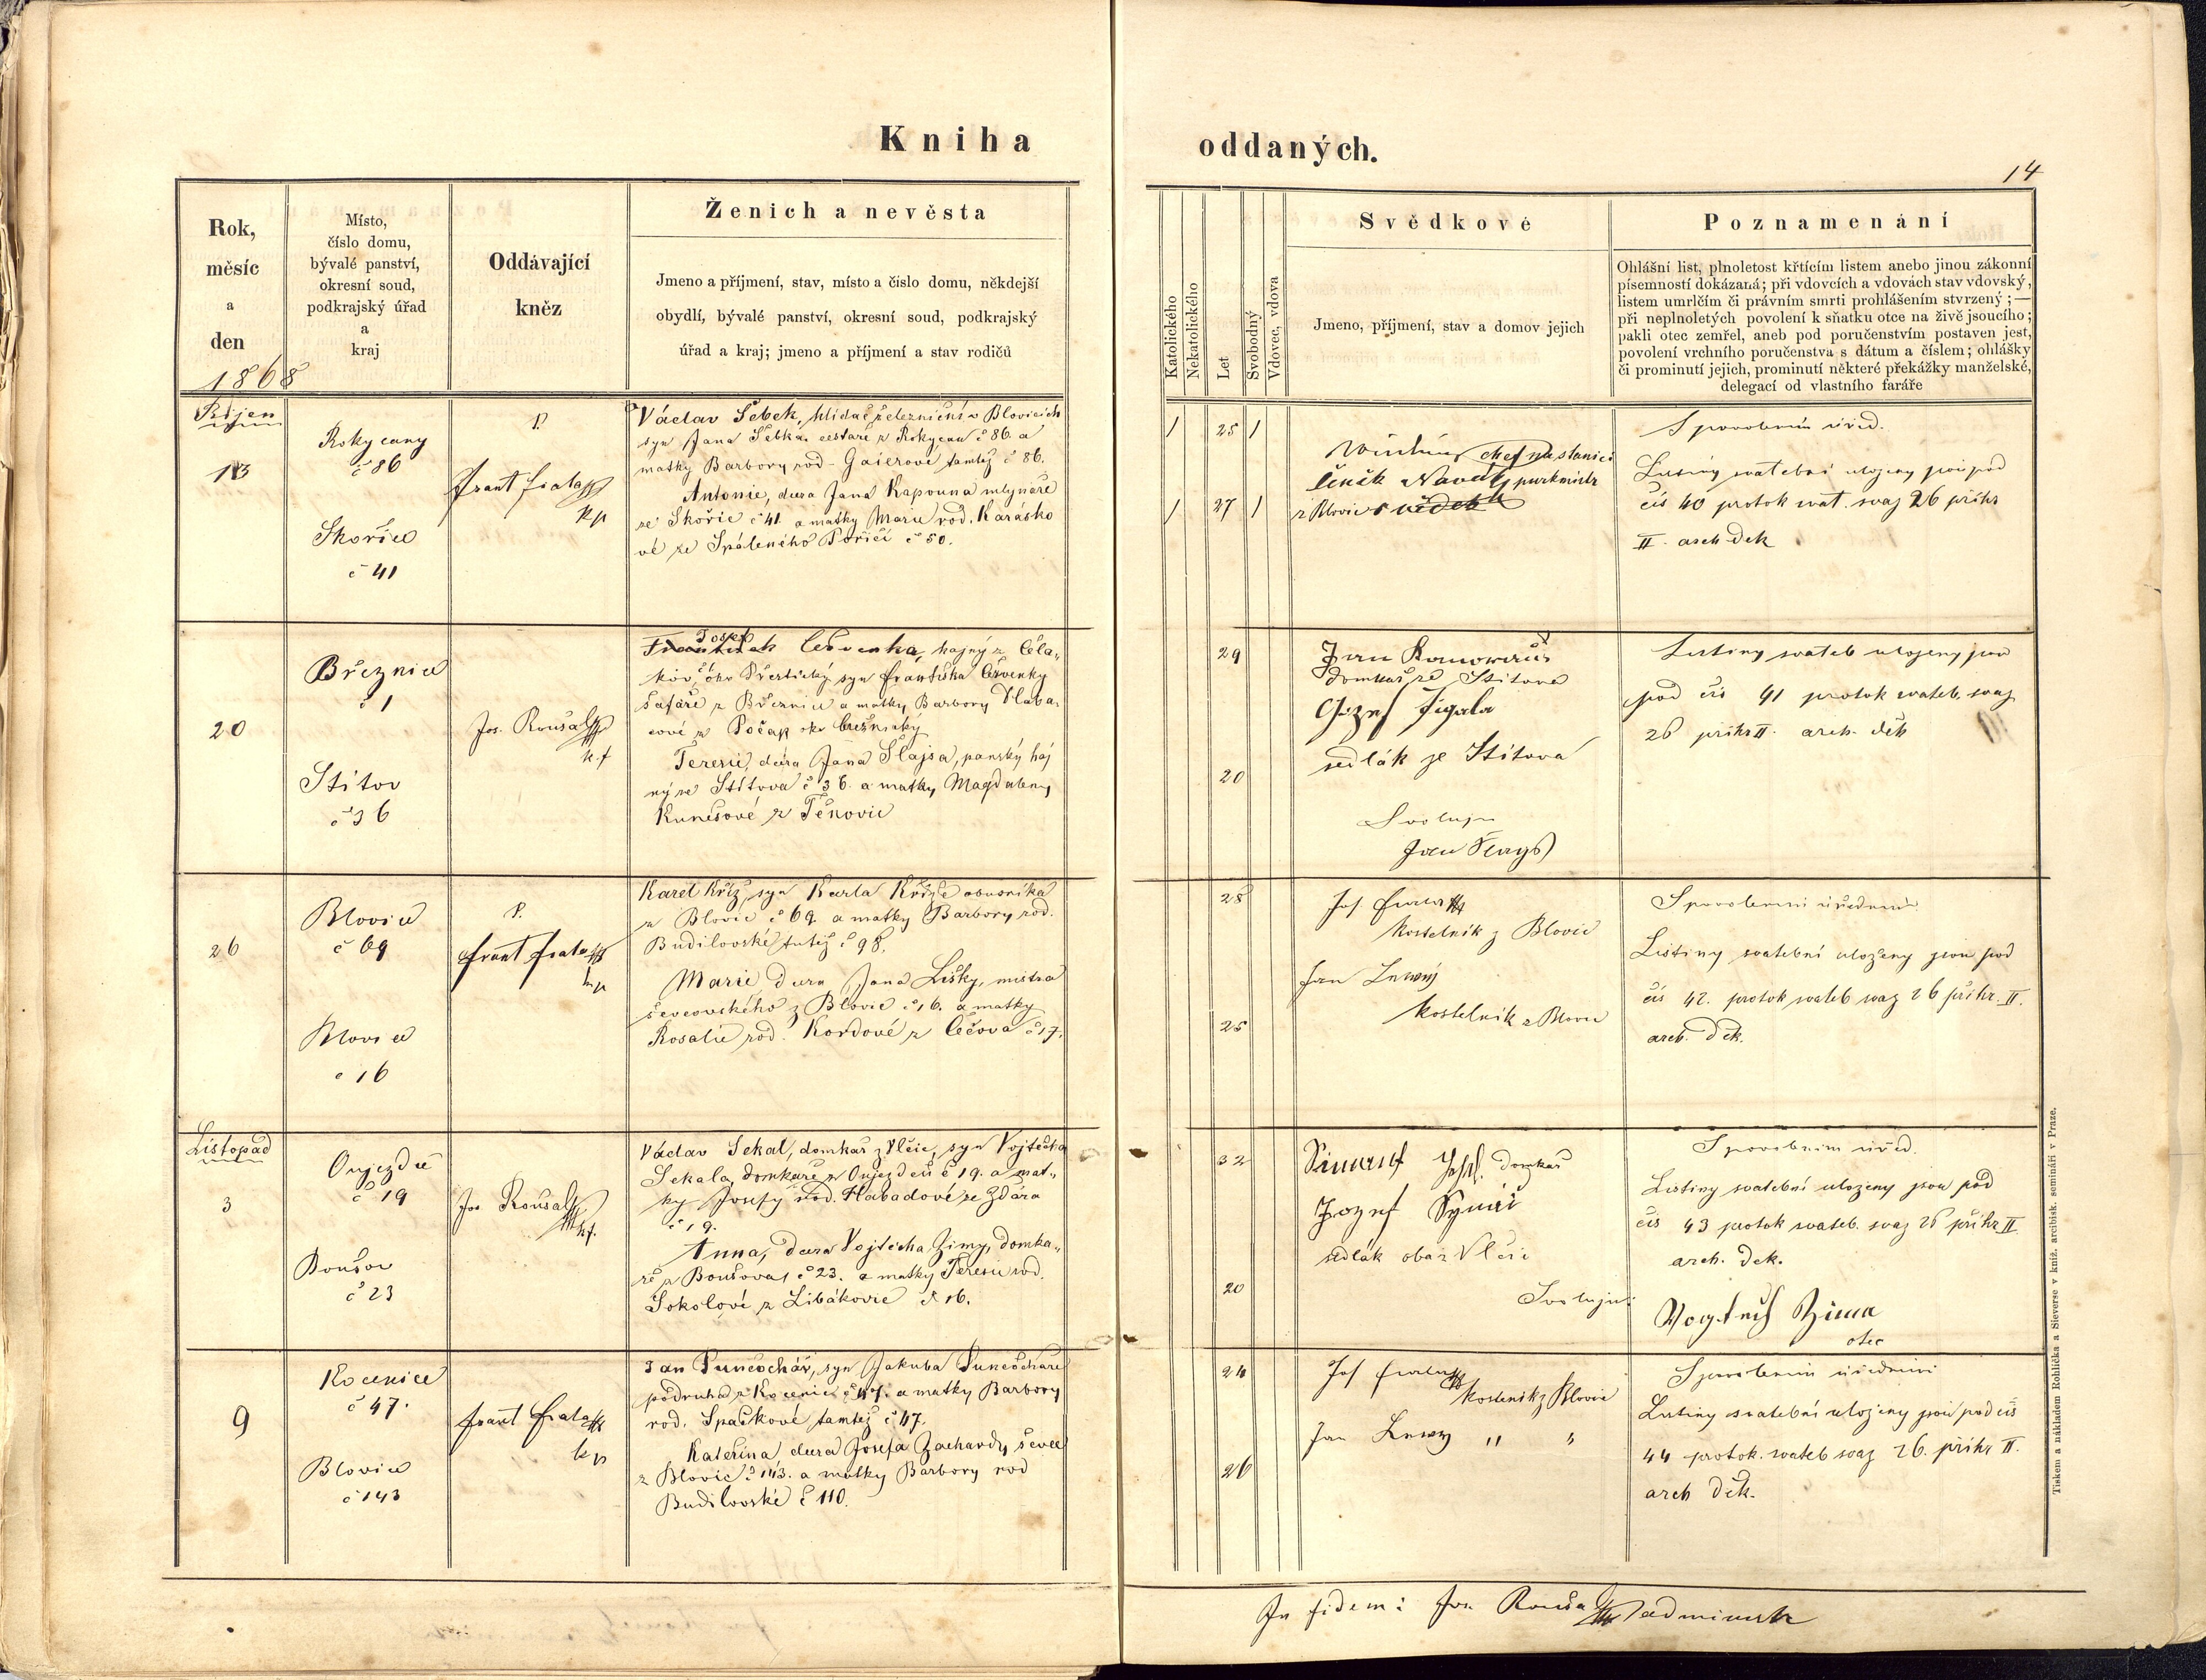 Kniha
oddaných.
14
Rok,
měsíc
a
den
1868
Místo,
číslo domu,
bývalé panství,
okresní soud,
podkrajský úřad
a
kraj
Oddávající
kněz
Ženich a nevěsta
Jmeno a příjmení, stav, místo a čislo domu, někdejší
obydlí, bývalé panství, okresní soud, podkrajský
úřad a kraj; jmeno a příjmení a stav rodičů
Katolického
Nekatolického
Let
Svobodný
Vdovec, vdova
Svědkové
Jmeno, příjmení, stav a domov jejich
Poznamenání
Ohlášní list, plnoletost křtícím listem anebo jinou zákonní
písemností dokázaná; při vdovcích a vdovách stav vdovský,
listem umrlčím či právním smrti prohlášením stvrzený;—
při neplnoletých povolení k sňatku otce na živě jsoucího;
pakli otec zemřel, aneb pod poručenstvím postaven jest,
povolení vrchního poručenstva s dátum a číslem; ohlášky
či prominutí jejich, prominutí některé překážky manželské,
delegací od vlastního faráře
Říjen
13
Rokycany
č 86
Skořice
č 41
P.
Frant Fiala
kp
Václav Šebek, hlídač železniční v Blovicích
syn Jana Šebka, cestáře z Rokycan č 86. a
matky Barbory rod. Gaierové tamtéž č 86.
Antonie, dcera Jana Kapouna mlynáře
ze Skořic č 41. a matky Marie rod. Karásko
vé ze Spáleného Poříčí č 50.
1 25 1
1 27 1
chef na stanici
Čeněk Novák purkmistr
z Blovic svědek
Spovobním úřed.
Listiny svatební uloženy jsou pod
čís 40 protok svat. svaz 26 přihr
II. arch dek
20
Březnice
č 1
Štítov
č 36
Jos. Roušal
k.f
Josef
František Červenka, hajný z Čela„
kov, okr Přeštický, syn Františka Červenky
šafáře z Březnice a matky Barbory Hlava„
cové z Počap okr březnický
Teresie, dcera Jana Šlajsa, panský haj
ný ze Štítova č 36. a matky Magdaleny
Kunešové z Těnovic
29
20
Jan
domkař ze Štitova
Jozef Figala
sedlák ze Štítova
Svoluju
Jan Šlays
Listiny svateb uloženy jsou
pod čís 41 protok svateb. svaz
26 přihr II. arch. děk
26
Blovice
č 69
Blovice
č 16
P.
Frant Fiala
kp
Karel Kříž, syn Karla Kříže obuvníka
z Blovic č 69. a matky Barbory rod.
Budilovské tutéž č 98.
Marie, dcera Jana Lišky, mistra
ševcovského z Blovic č 16. a matky
Rosalie rod. Kordové z Čečova č 17.
28
25
Jos Fiala
kostelník z Blovic
Jan
kostelník z Blovic
Spovolením úředním
Listiny svatební uloženy jsou pod
čís 42. protok svateb svaz 26 přihr. II.
arch. děk.
Listopad
3
Oujezdec
č 19
Boušov
č 23
Jos Roušal
kf.
Václav Sekal, domkář z Vlčic, syn Vojtěcha
Sekala, domkáře z Oujezdce č 19. a mat„
ky Josefy rod. Habadové ze Ždára
č 19.
Anna, dcera Vojtěcha Zimy, domka„
ře z Boušova č 23. a matky Teresie rod.
Sokolové z Libákovic č 16.
32
20
domkář
Jozef
sedlák oba z Vlčic
Svoluju:
Spovobním úřed.
Listiny svatební uloženy jsou pod
čís 43 protok svateb. svaz 26 přihr II
arch. dek.
Vogtech Zima
otec
9
Kocenice
č 47.
Blovice
č 143
Frant Fiala
kp
Jan Punčochář, syn Jakuba Punčocháře
podruha z Kocenic č 47. a matky Barbory
rod. Spačkové tamtéž č 47.
Kateřina dcera Josefa Zachardy ševce
z Blovic č 143. a matky Barbory rod
Budilovské č 110.
24
26
Jos Fiala
kostelník z Blovic
Jan „ „
Spovolením úředním
Listiny svatební uloženy jsou pod čís
44 protok. svateb svaz 26. přihr II.
arch děk.
In fidem: Jos Roušal administr
Tiskem a nákladem Rohlíčka a Sieverse v kníž. arcibisk. semináři v Praze.